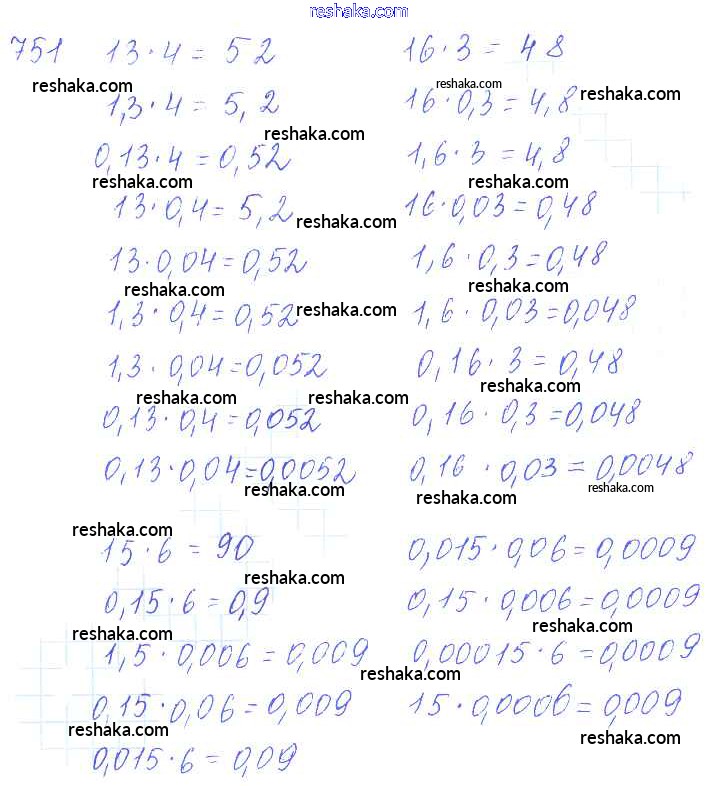 reshaka.com
751 13·4 = 52
16·3 = 48
reshaka.com
reshaka.com
1,3·4 = 5,2
16·0,3 = 4,8
reshaka.com
reshaka.com
0,13·4 = 0,52
1,6·3 = 4,8
reshaka.com
reshaka.com
13·0,4 = 5,2
16·0,03 = 0,48
reshaka.com
reshaka.com
13·0,04 = 0,52
1,6·0,3 = 0,48
reshaka.com
reshaka.com
1,3·0,4 = 0,52
1,6·0,03 = 0,048
reshaka.com
1,3·0,04 = 0,052
0,16·3 = 0,48
reshaka.com
reshaka.com
reshaka.com
0,13·0,4 = 0,052
0,16·0,3 = 0,048
0,13·0,04 = 0,0052
0,16·0,03 = 0,0048
reshaka.com
reshaka.com
reshaka.com
reshaka.com
15·6 = 90
0,015·0,06 = 0,0009
reshaka.com
0,15·6 = 0,9
0,15·0,006 = 0,0009
reshaka.com
reshaka.com
1,5·0,006 = 0,009
0,00015·6 = 0,0009
reshaka.com
0,15·0,06 = 0,009
15·0,0006 = 0,009
reshaka.com
reshaka.com
0,015·6 = 0,09